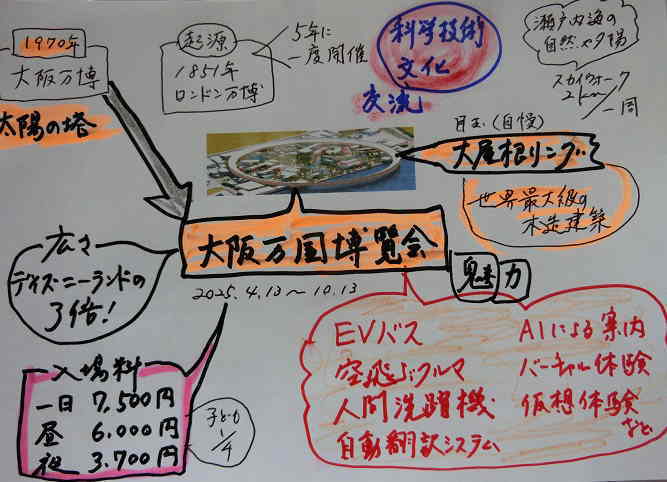 1970年
大阪万博
太陽の塔
起源
1851年
ロンドン万博
5年に
一度開催
科学技術
文化
交流
瀬戸内海の
自然や夕場
スカイウォーク
2km/一周
目玉(自慢)
大屋根リング
世界最大級の
木造建築
大阪万国博覧会
2025.4.13〜10.13
魅力
広さ
ディズニーランドの
3倍!
入場料
一日 7,500円
昼 6.000円
夜 3.700円
子ども
1/4
EVバス
空飛ぶクルマ
人間洗濯機
自動翻訳システム
AIによる案内
バーチャル体験
仮想体験
など